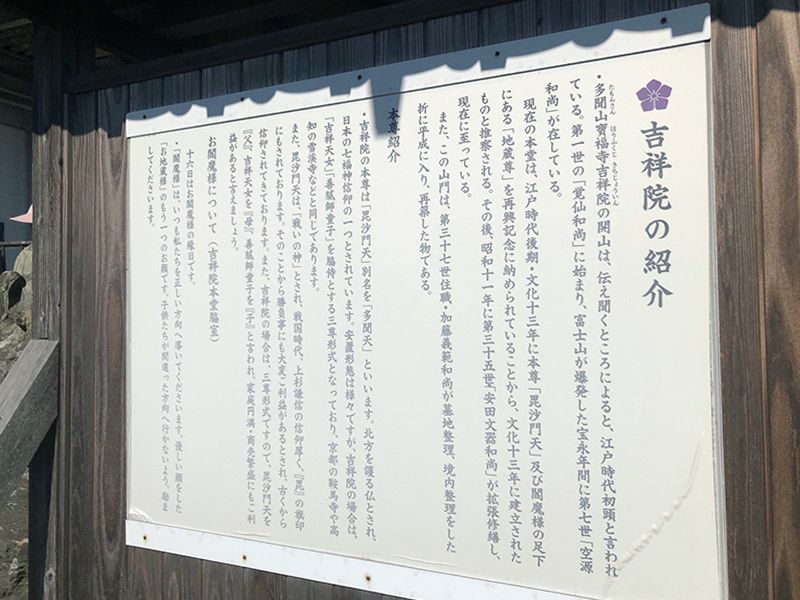 吉祥院の紹介
たもんさん ほうふくじ きちじょういん
・多聞山寶福寺吉祥院の開山は、伝え聞くところによると、江戸時代初頭と言われ
ている。第一世の「覚仙和尚」に始まり、富士山が爆発した宝永年間に第七世「空源
和尚」が在している。
現在の本堂は、江戸時代後期・文化十三年に本尊「毘沙門天」及び閻魔様の足下
にある「地蔵尊」を再興記念に納められていることから、文化十三年に建立された
ものと推察される。その後、昭和十一年に第三十五世「安田文器和尚」が拡張修繕し、
現在に至っている。
また、この山門は、第三十七世住職・加藤義範和尚が墓地整理、境内整理をした
折に平成に入り、再築した物である。
本尊紹介
・吉祥院の本尊は「毘沙門天」別名を「多聞天」といいます。北方を護る仏とされ、
日本の七福神信仰の一つとされています。安置形態は様々ですが、吉祥院の場合は、
「吉祥天女」「善膩師童子」を脇侍とする三尊形式となっており、京都の鞍馬寺や高
知の雪渓寺などと同じであります。
また、毘沙門天は、「戦いの神」とされ、戦国時代、上杉謙信の信仰厚く、『毘』の旗印
にもされております。そのことから勝負事にも大変ご利益があるとされ、古くから
信仰されてきております。また、吉祥院の場合は、三尊形式ですので、毘沙門天を
『父』、吉祥天女を『母』、善膩師童子を『子』と言われ、家庭円満・商売繁盛にもご利
益があると言えましょう。
お閻魔様について(吉祥院本堂脇室)
十六日はお閻魔様の縁日です。
・「閻魔様」は、いつも私たちを正しい方向へ導いてくださいます。優しい顔をした
「お地蔵様」のもう一つのお顔です。子供たちが間違った方向へ行かないよう、励ま
してくださいます。